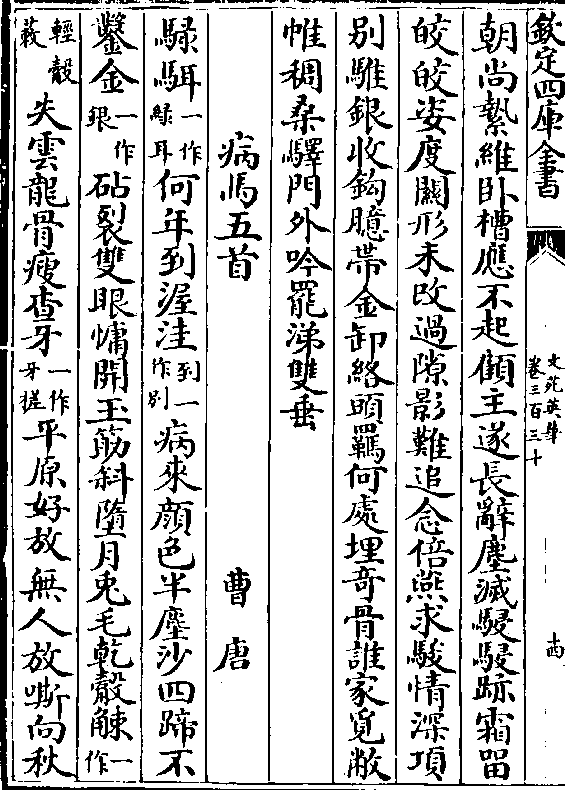 欽定四庫全書
文苑英華
卷三百三十
十四
朝尚縶維卧槽應不起顧主遂長辭塵滅駸駸跡霜留
皎皎姿度關形未改過隙影難追念倍燕求駿情深項
别騅銀收鈎臆帶金卸絡頭羈何處埋奇骨誰家覓敝
帷稠桑驛門外吟罷涕雙垂
病馬五首　曹唐
騄駬一作緑耳何年到渥洼到一作别病來顔色半塵沙四蹄不
鑿金一作銀砧裂雙眼慵開玉筯斜墮月兎毛乾觳觫一作
輕觳蔌失雲龍骨瘦查牙一作牙槎平原好放無人放嘶向秋